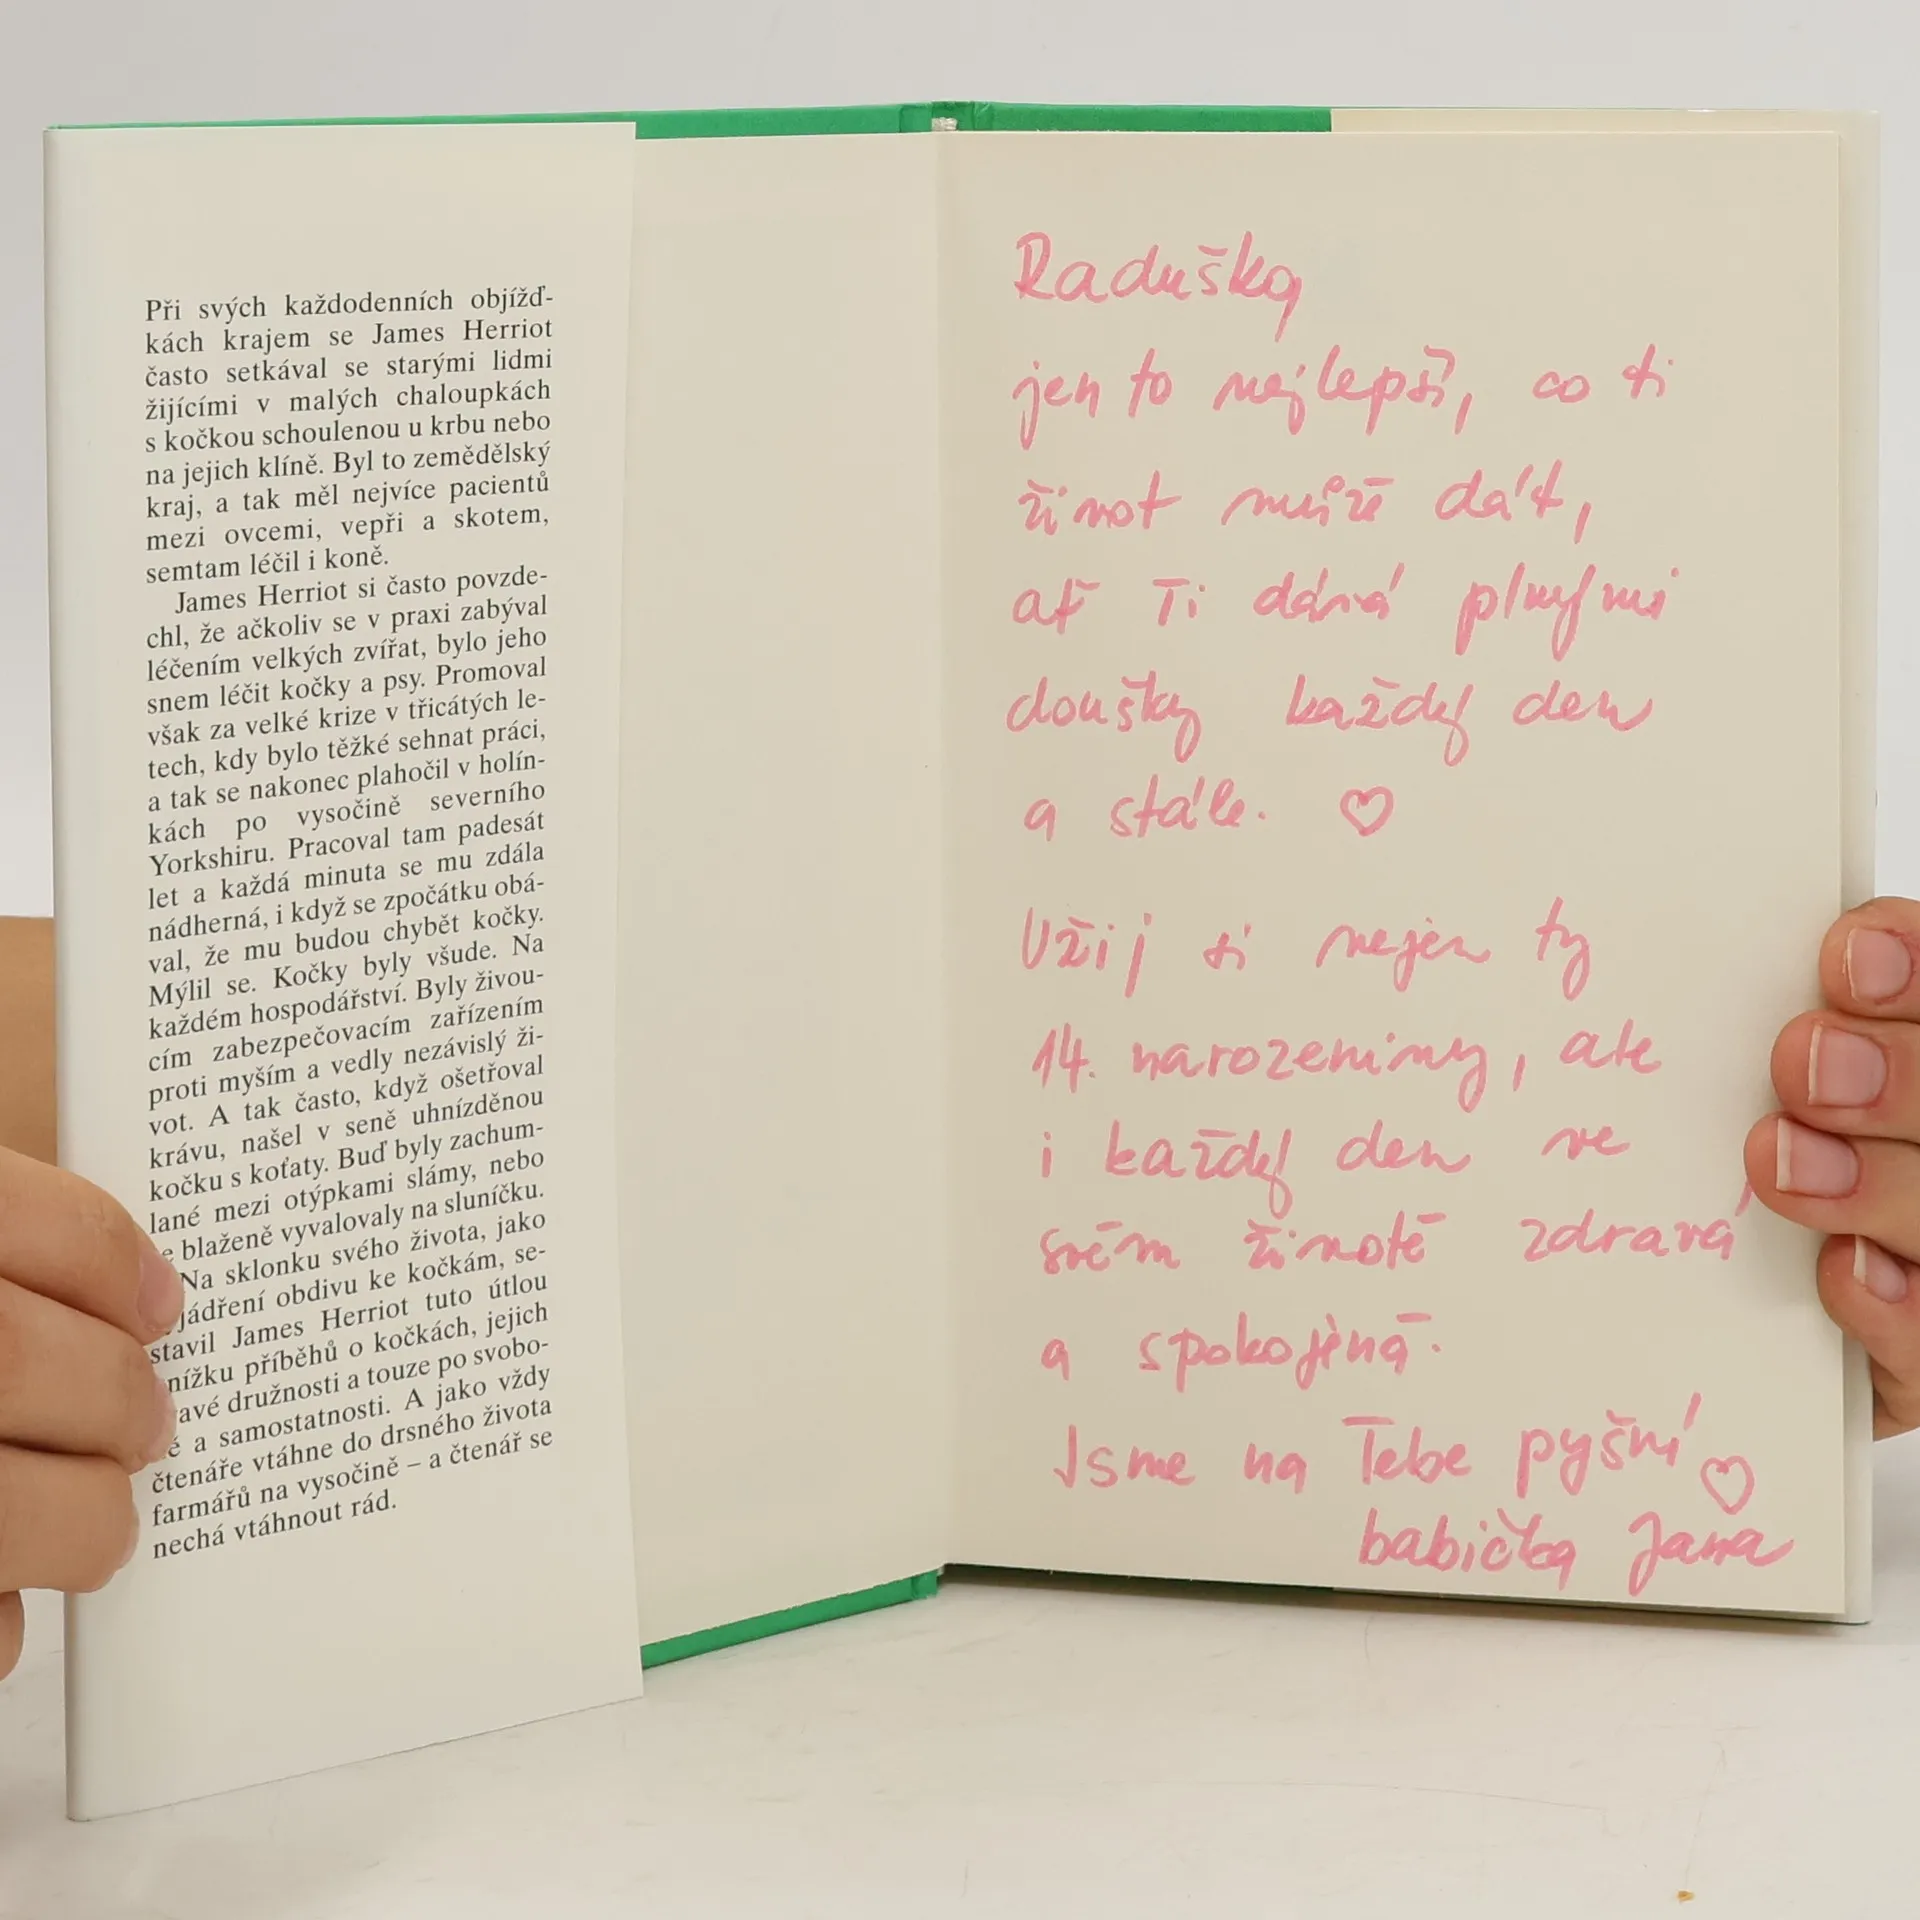 Při svých každodenních objížď-
kách krajem se James Herriot
často setkával se starými lidmi
žijícími v malých chaloupkách
s kočkou schoulenou u krbu nebo
na jejich klíně. Byl to zemědělský
kraj, a tak měl nejvíce pacientů
mezi ovcemi, vepři a skotem,
semtam léčil i koně.
James Herriot si často povzde-
chl, že ačkoliv se v praxi zabýval
léčením velkých zvířat, bylo jeho
snem léčit kočky a psy. Promoval
však za velké krize v třicátých le-
tech, kdy bylo těžké sehnat práci,
a tak se nakonec plahočil v holín-
kách po vysočině severního
Yorkshiru. Pracoval tam padesát
let a každá minuta se mu zdála
nádherná, i když se zpočátku obá-
val, že mu budou chybět kočky.
Mýlil se. Kočky byly všude. Na
každém hospodářství. Byly živou-
cím zabezpečovacím zařízením
proti myším a vedly nezávislý ži-
vot. A tak často, když ošetřoval
krávu, našel v seně uhnízděnou
kočku s koťaty. Buď byly zachum-
lané mezi otýpkami slámy, nebo
se blaženě vyvalovaly na sluníčku.
Na sklonku svého života, jako
jádření obdivu ke kočkám, se-
stavil James Herriot tuto útlou
nížku příběhů o kočkách, jejich
avé družnosti a touze po svobo-
é a samostatnosti. A jako vždy
čtenáře vtáhne do drsného života
farmářů na vysočině – a čtenář se
nechá vtáhnout rád.
Raduško
jen to nejlepší, co ti
život může dát,
ať Ti dává plnými
doušky každý den
a stále. ♡
Užij si nejen ty
14. narozeniny, ale
i každý den ve
svém životě zdravá
a spokojená.
Jsme na Tebe pyšní ♡
babička Jana